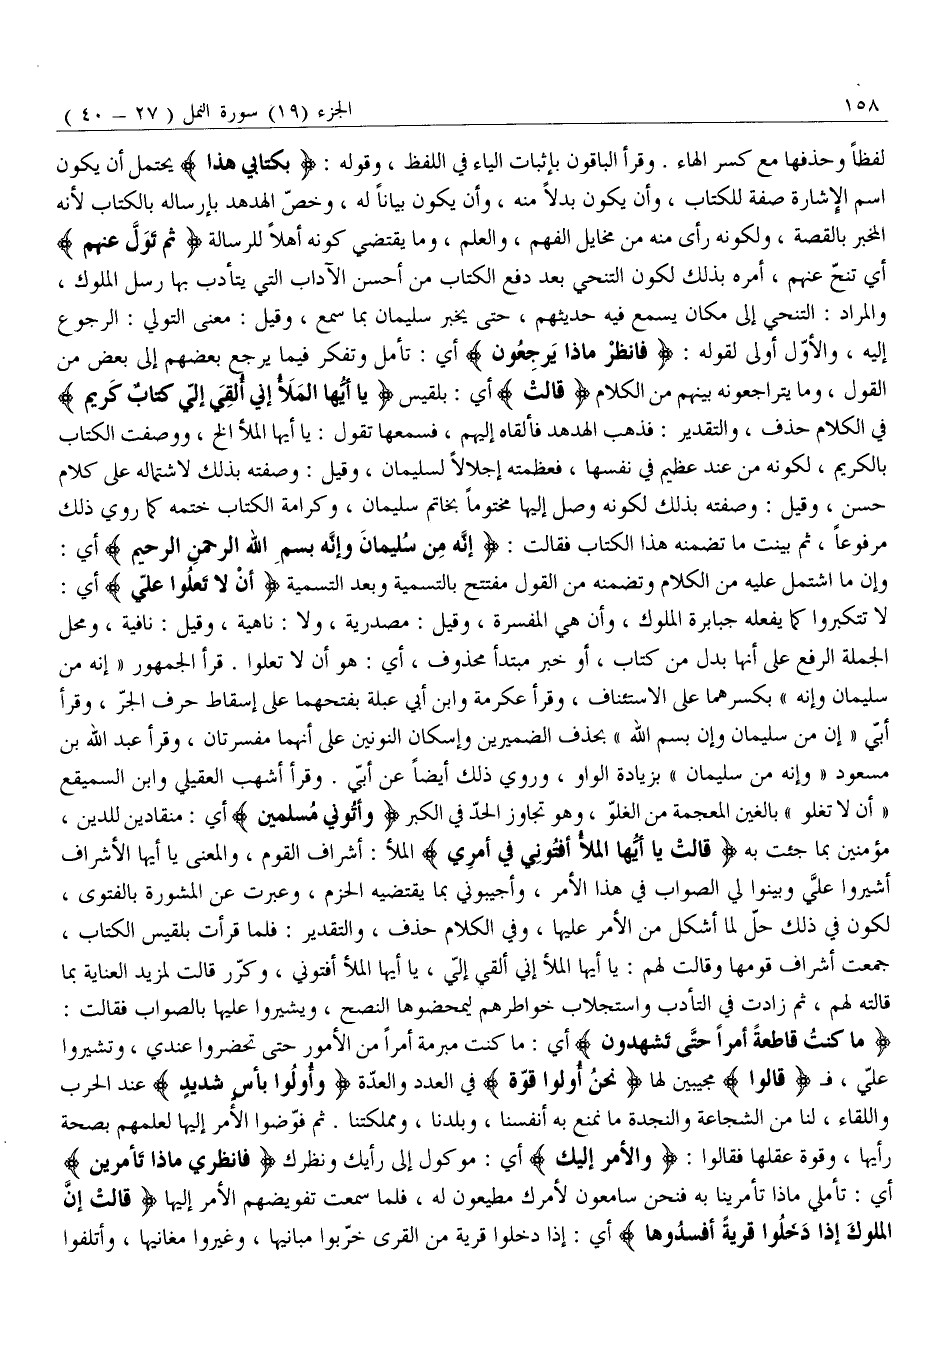 ١٥٨
الجزء (١٩) سورة النمل ( ٢٧ – ٤٠ )
لفظاً وحذفها مع كسر الهاء . وقرأ الباقون بإثبات الياء في اللفظ ، وقوله : ﴿ بكتابي هذا ﴾ يحتمل أن يكون
اسم الإشارة صفة للكتاب ، وأن يكون بدلاً منه ، وأن يكون بياناً له ، وخصّ الهدهد بإرساله بالكتاب لأنه
المخبر بالقصة ، ولكونه رأى منه من مخايل الفهم ، والعلم ، وما يقتضي كونه أهلاً للرسالة ﴿ ثم تَوَلَّ عنهم ﴾
أي تنحّ عنهم ، أمره بذلك لكون التنحي بعد دفع الكتاب من أحسن الآداب التي يتأدب بها رسل الملوك ،
والمراد : التنحي إلى مكان يسمع فيه حديثهم ، حتى يخبر سليمان بما سمع ، وقيل : معنى التولي : الرجوع
إليه ، والأوّل أولى لقوله : ﴿ فانظرْ ماذا يَرجِعُون ﴾ أي : تأمل وتفكر فيما يرجع بعضهم إلى بعض من
القول ، وما يتراجعونه بينهم من الكلام ﴿ قالتْ ﴾ أي : بلقيس ﴿ يا أيُّها المَلَأُ إني أُلقِيَ إليّ كتابٌ كَريم ﴾
في الكلام حذف ، والتقدير : فذهب الهدهد فألقاه إليهم ، فسمعها تقول : يا أيها الملأ الخ ، ووصفت الكتاب
بالكريم ، لكونه من عند عظيم في نفسها ، فعظمته إجلالاً لسليمان ، وقيل : وصفته بذلك لاشتماله على كلام
حسن ، وقيل : وصفته بذلك لكونه وصل إليها مختوماً بخاتم سليمان ، وكرامة الكتاب ختمه كما روي ذلك
مرفوعاً ، ثم بينت ما تضمنه هذا الكتاب فقالت : ﴿ إنَّه مِن سُليمانَ وإنَّه بسمِ الله الرحمنِ الرحيم ﴾ أي :
وإن ما اشتمل عليه من الكلام وتضمنه من القول مفتتح بالتسمية وبعد التسمية ﴿ أنْ لا تَعلُوا عليّ ﴾ أي :
لا تتكبروا كما يفعله جبابرة الملوك ، وأن هي المفسرة ، وقيل : مصدرية ، ولا : ناهية ، وقيل : نافية ، ومحل
الجملة الرفع على أنها بدل من كتاب ، أو خبر مبتدأ محذوف ، أي : هو أن لا تعلوا . قرأ الجمهور « إنه من
سليمان وإنه » بكسرهما على الاستئناف ، وقرأ عكرمة وابن أبي عبلة بفتحهما على إسقاط حرف الجرّ ، وقرأ
أبيّ « إن من سليمان وإن بسم الله » بحذف الضميرين وإسكان النونين على أنهما مفسرتان ، وقرأ عبد الله بن
مسعود « وإنه من سليمان » بزيادة الواو ، وروي ذلك أيضاً عن أبيّ . وقرأ أشهب العقيلي وابن السميقع
« أن لا تغلو » بالغين المعجمة من الغلوّ ، وهو تجاوز الحدّ في الكبر ﴿ وأتُوني مُسلمين ﴾ أي : منقادين للدين ،
مؤمنين بما جئت به ﴿ قالتْ يا أيُّها الملأُ أفتُوني في أمرِي ﴾ الملأ : أشراف القوم ، والمعنى يا أيها الأشراف
أشيروا عليَّ وبينوا لي الصواب في هذا الأمر ، وأجيبوني بما يقتضيه الحزم ، وعبرت عن المشورة بالفتوى ،
لكون في ذلك حلّ لما أشكل من الأمر عليها ، وفي الكلام حذف ، والتقدير : فلما قرأت بلقيس الكتاب ،
جمعت أشراف قومها وقالت لهم : يا أيها الملأ إني ألقي إليّ ، يا أيها الملأ أفتوني ، وكرّر قالت لمزيد العناية بما
قالته لهم ، ثم زادت في التأدب واستجلاب خواطرهم ليمحضوها النصح ، ويشيروا عليها بالصواب فقالت :
﴿ ما كنتُ قاطعةً أمراً حتَّى تَشهدون ﴾ أي : ما كنت مبرمة أمراً من الأمور حتى تحضروا عندي ، وتشيروا
عليّ ، فـ ﴿ قالوا ﴾ مجيبين لها ﴿ نحنُ أُولوا قوّة ﴾ في العدد والعدّة ﴿ وأُولُوا بأسٍ شديدٍ ﴾ عند الحرب
واللقاء ، لنا من الشجاعة والنجدة ما نمنع به أنفسنا ، وبلدنا ، ومملكتنا . ثم فوّضوا الأمر إليها لعلمهم بصحة
رأيها ، وقوة عقلها فقالوا : ﴿ والأمر إليك ﴾ أي : موكول إلى رأيك ونظرك ﴿ فانظري ماذا تَأمرين ﴾
أي : تأملي ماذا تأمرينا به فنحن سامعون لأمرك مطيعون له ، فلما سمعت تفويضهم الأمر إليها ﴿ قالتْ إنَّ
الملوكَ إذا دَخَلُوا قريةً أفسدُوها ﴾ أي : إذا دخلوا قرية من القرى خرّبوا مبانيها ، وغيروا مغانيها ، وأتلفوا